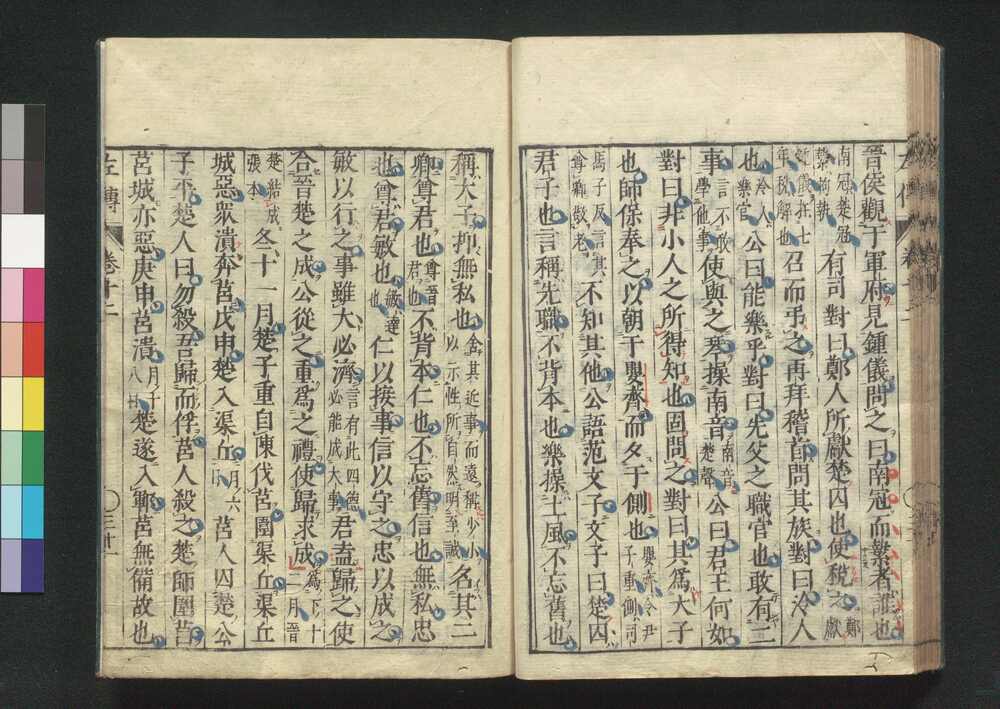 晉侯觀于軍府見鍾儀問之曰南冠而縶者誰也
南冠楚冠縶拘執鍾儀在七年稅解也有司對曰鄭人所獻楚囚也使稅之鄭獻
召而弔之再拜稽首問其族對曰泠人
也泠人樂官公曰能樂乎對曰先父之職官也敢有二
事言不敢學他事使與之琴操南音南音楚聲公曰君王何如
對曰非小人之所得知也固問之對曰其爲大子
也師保奉之以朝于嬰齊而夕于側也嬰齊令尹子重側司
馬子反言其尊卿敬老不知其他公語范文子文子曰楚囚
君子也言稱先職不背本也樂操土風不忘舊也
稱大子抑無私也舍其近事而遠稱少小以示性所自然明至誠名其二
卿尊君也尊晉君也不背本仁也不忘舊信也無私忠
也尊君敏也敏達也仁以接事信以守之忠以成之
敏以行之事雖大必濟言有此四德必能成大事君盍歸之使
合晉楚之成公從之重爲之禮使歸求成爲下十二月晉
楚結成張本冬十一月楚子重自陳伐莒圍渠丘渠丘
城惡衆潰奔莒戊申楚入渠丘月六日莒人囚楚公
子平楚人曰勿殺吾歸而俘莒人殺之楚師圍莒
莒城亦惡庚申莒潰月十八日楚遂入鄆莒無備故也
左傳
卷十二
三十一